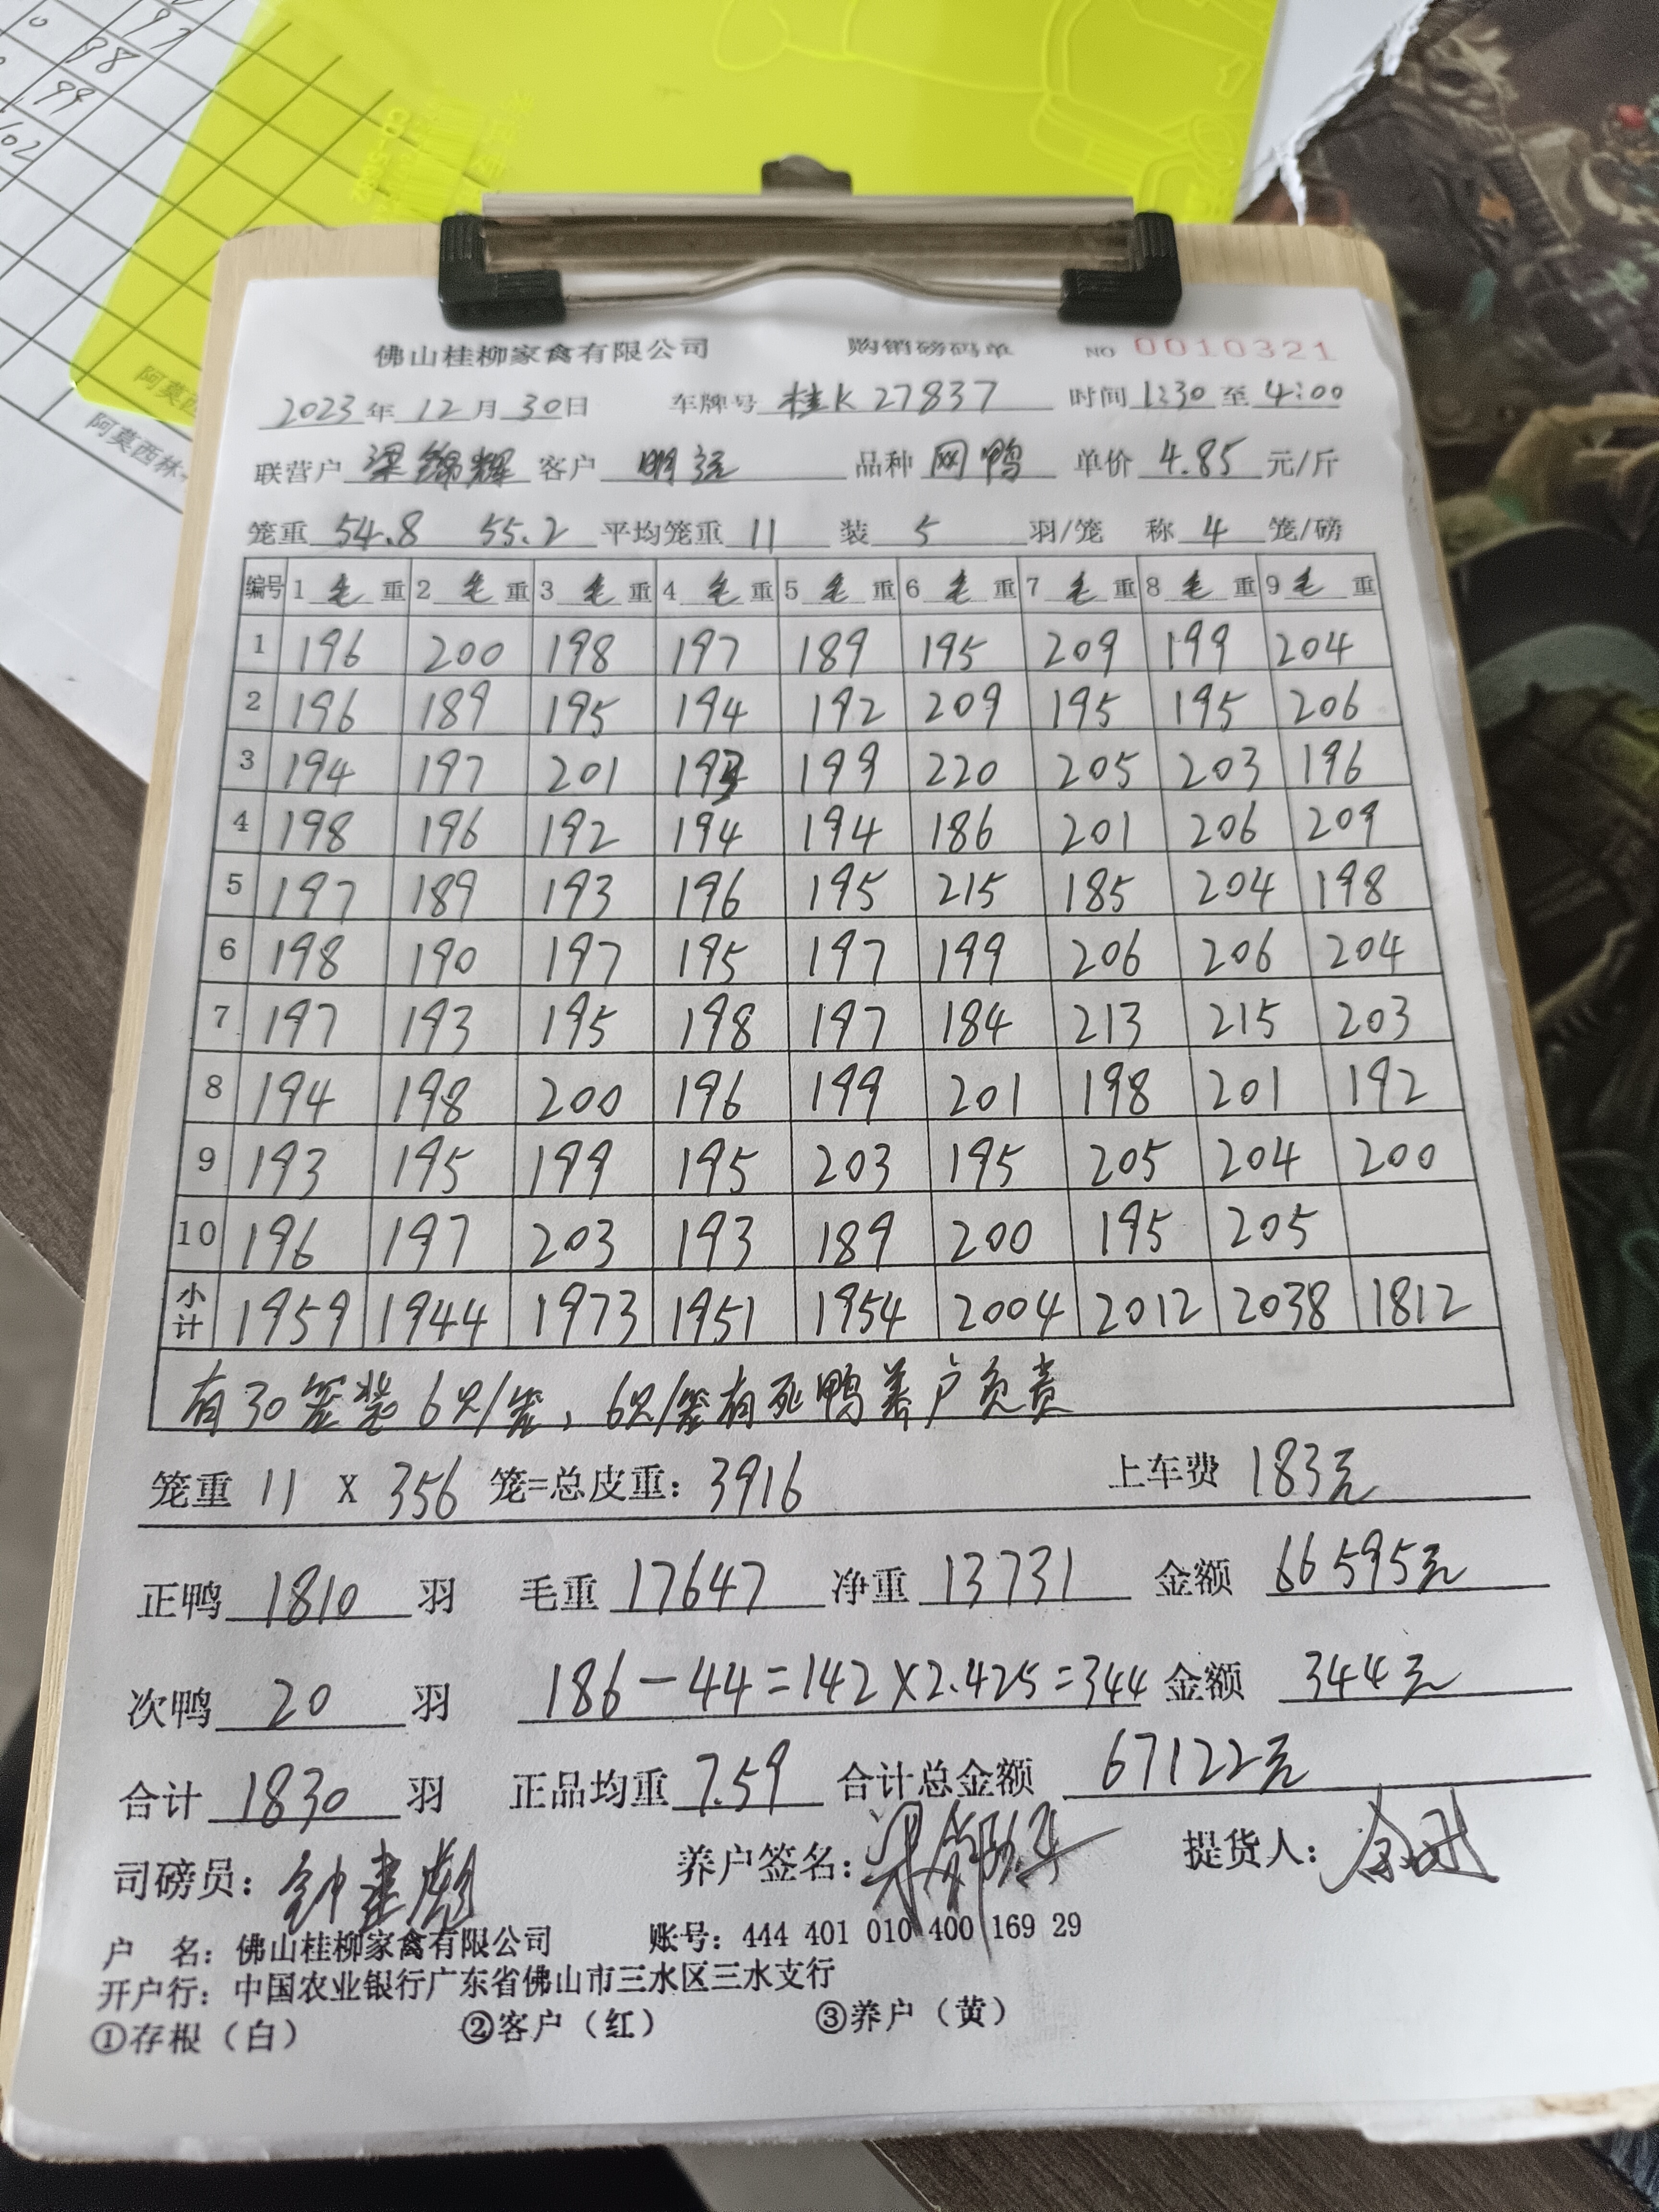 97
98
99
102
阿莫西
阿莫西林
佛山桂柳家禽有限公司 购销磅码单 NO 0010321
2023年12月30日 车牌号 桂K 27837 时间 1:30 至 4:00
联营户 梁锦辉 客户 明记 品种 网鸭 单价 4.85 元/斤
笼重 54.8 55.2 平均笼重 11 装 5 羽/笼 称 4 笼/磅
编号 1 毛 重 2 毛 重 3 毛 重 4 毛 重 5 毛 重 6 毛 重 7 毛 重 8 毛 重 9 毛 重
1 196 200 198 197 189 195 209 199 204
2 196 189 195 194 192 209 195 195 206
3 194 197 201 193 199 220 205 203 196
4 198 196 192 194 194 186 201 206 209
5 197 189 193 196 195 215 185 204 198
6 198 190 197 195 197 199 206 206 204
7 197 193 195 198 197 184 213 215 203
8 194 198 200 196 199 201 198 201 192
9 193 195 199 195 203 195 205 204 200
10 196 197 203 193 189 200 195 205
小计 1959 1944 1973 1951 1954 2004 2012 2038 1812
有30笼装6只/笼，6只/笼有死鸭养户负责
笼重 11 X 356 笼=总皮重：3916 上车费 183元
正鸭 1810 羽 毛重 17647 净重 13731 金额 66595元
次鸭 20 羽 186-44=142×2.425=344 金额 344元
合计 1830 羽 正品均重 7.59 合计总金额 67122元
司磅员：钟 养户签名： 提货人：
户 名：佛山桂柳家禽有限公司 账号：444 401 010 400 169 29
开户行：中国农业银行广东省佛山市三水区三水支行
①存根（白） ②客户（红） ③养户（黄）